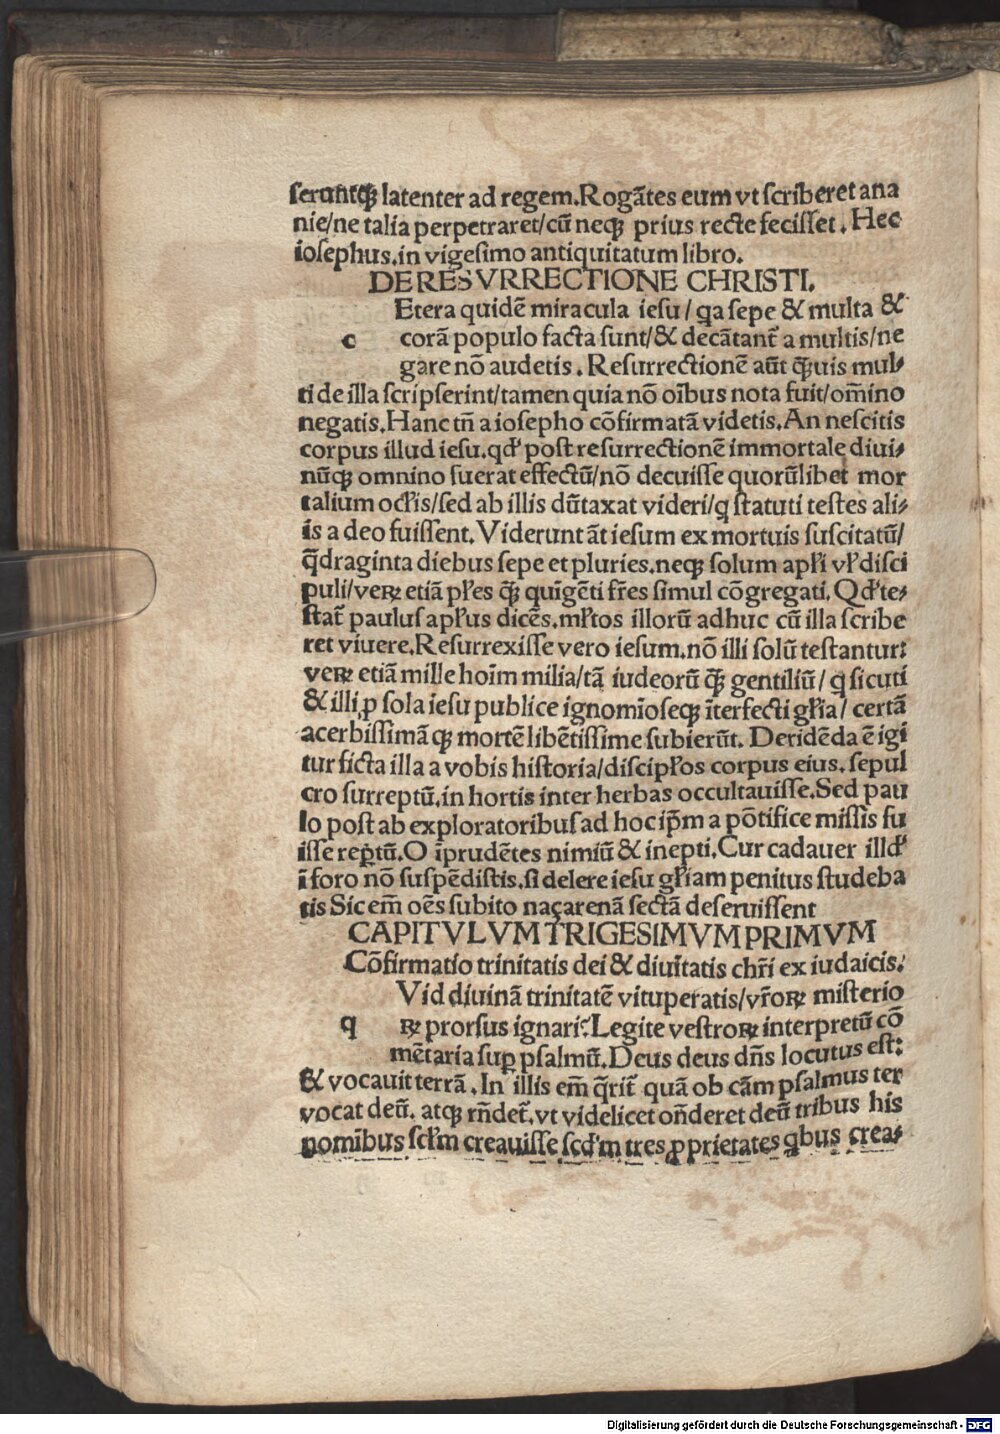 seruntq́ꝫ latenter ad regem. Rogātes eum vt scriberet ana
nie/ne talia perpetraret/cū neqꝫ prius recte fecisset. Hec
iosephus. in vigesimo antiquitatum libro.
DE RESVRRECTIONE CHRISTI.
Etera quidē miracula iesu/ qa sepe & multa &
c corā populo facta sunt/& decātant̃ a multis/ne
gare nō audetis. Resurrectionē aūt q̃uis mul-
ti de illa scripserint/tamen quia nō oībus nota fuit/om̄ino
negatis. Hanc tñ a iosepho cōfirmatā videtis. An nescitis
corpus illud iesu. qd' post resurrectionē immortale diui-
nūqꝫ omnino fuerat effectū/nō decuisse quorūlibet mor
talium oclis/sed ab illis dūtaxat videri/q statuti testes ali-
is a deo fuissent. Viderunt āt iesum ex mortuis suscitatū/
q̄draginta diebus sepe et pluries. neqꝫ solum apłi vł disci
puli/veꝝ etiā płes q̃ꝫ quīgēti fr̄es simul cōgregati. Qd' te-
stat̃ paulus apłus dicēs. młtos illorū adhuc cū illa scribe
ret viuere. Resurrexisse vero iesum. nō illi solū testantur:
veꝝ etiā mille hoīm milia/tā iudeorū q̃ꝫ gentiliū/ q sicuti
& illi, ꝓ sola iesu publice ignomīoseqꝫ īterfecti gł̄ia/ certā
acerbissimāqꝫ mortē libētissime subierūt. Deridēda ē igi
tur ficta illa a vobis historia/discipłos corpus eius. sepul
cro surreptū. in hortis inter herbas occultauisse. Sed pau
lo post ab exploratoribus ad hoc ip̄m a pōtifice missis fu
isse rep̱tū. O īprudētes nimiū & inepti. Cur cadauer illd'
ī foro nō suspēdistis. si delere iesu gł̄iam penitus studeba
tis Sic em̄ oēs subito naçarenā sectā deseruissent
CAPITVLVM TRIGESIMVM PRIMVM
Cōfirmatio trinitatis dei & diuītatis chr̄i ex iudaicis.
Vid diuinā trinitatē vituperatis/vr̄oꝝ misterio
q ꝝ prorsus ignari? Legite vestroꝝ interpretū cō
mētaria sup̱ psalmū. Deus deus dñs locutus est:
& vocauit terrā. In illis em̄ q̄rit̃ quā ob cām psalmus ter
vocat deū. atqꝫ rñdet̃. vt videlicet oñderet deū tribus his
nomībus scł'm creauisse scd'm tres ꝓprietates qbus crea-